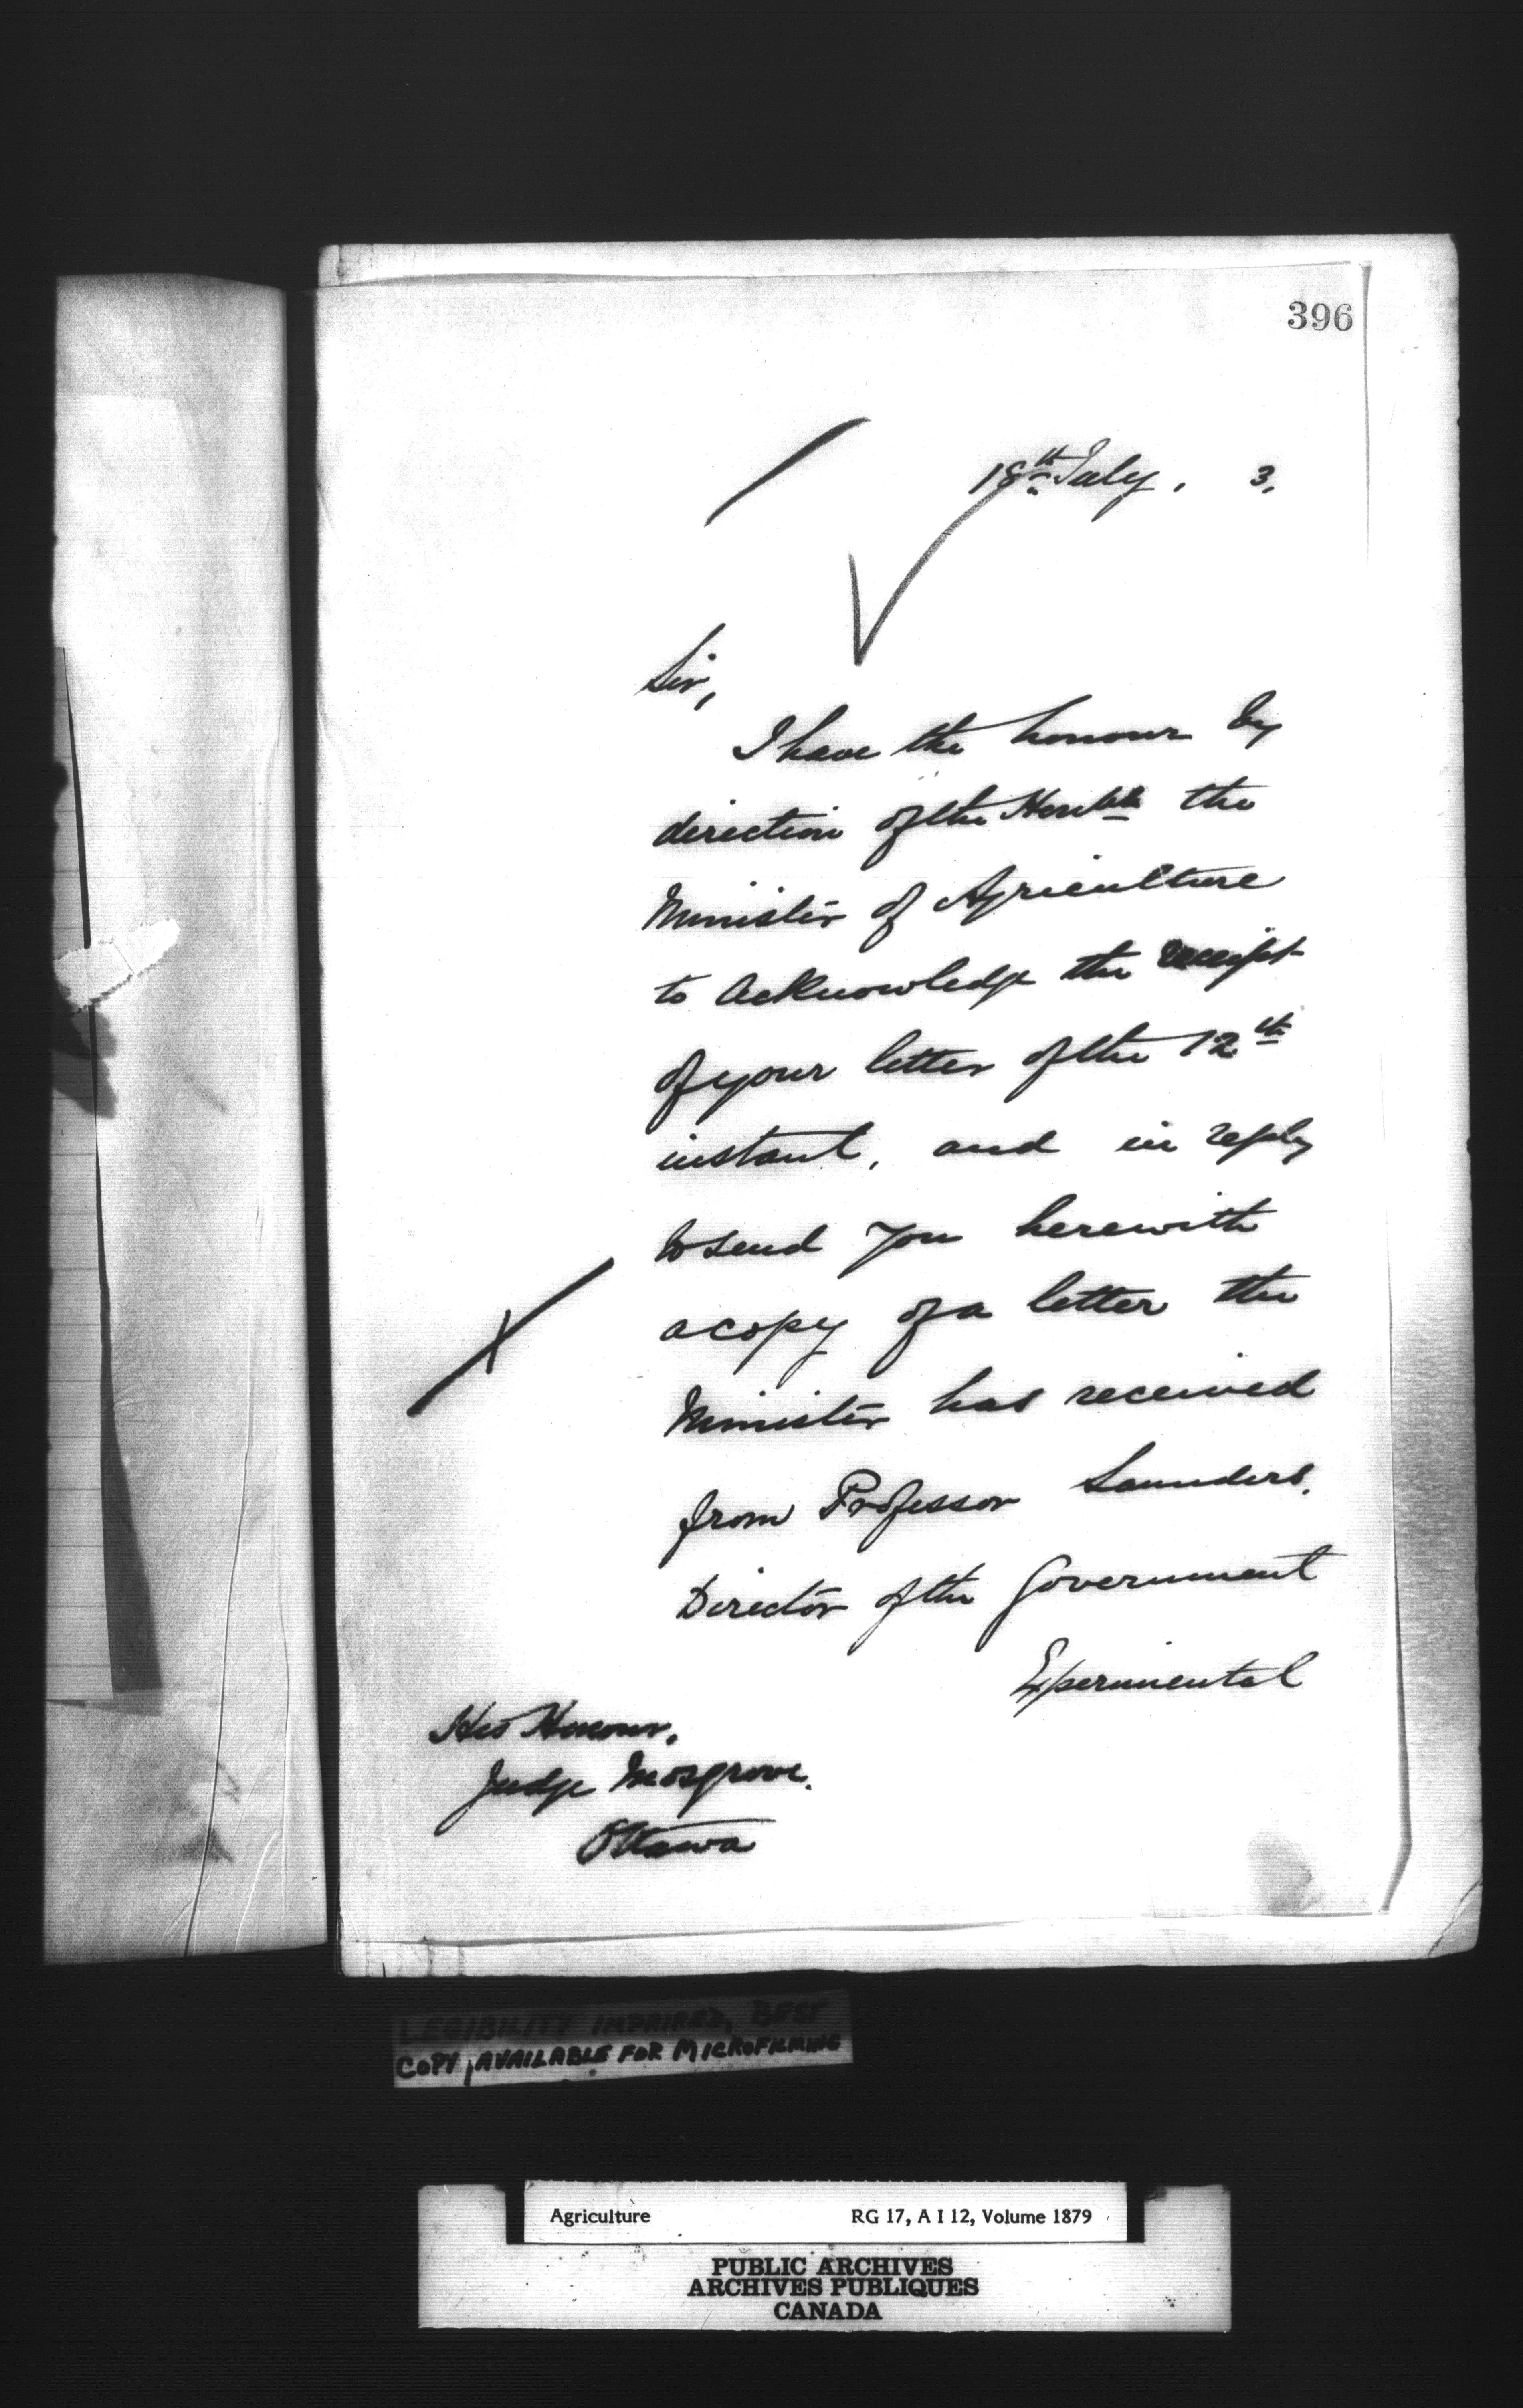 396
18th July, 3,
Sir,
I have the honour by
direction of the Honble the
Minister of Agriculture
to acknowledge the receipt
of your letter of the 12th
instant, and in reply
to send you herewith
a copy of a letter the
Minister has received
from Professor Saunders,
Director of the Government
Experimental
His Honour,
Judge Mosgrove,
Ottawa
LEGIBILITY IMPAIRED, BEST
COPY AVAILABLE FOR MICROFILMING
Agriculture RG 17, A I 12, Volume 1879
PUBLIC ARCHIVES
ARCHIVES PUBLIQUES
CANADA